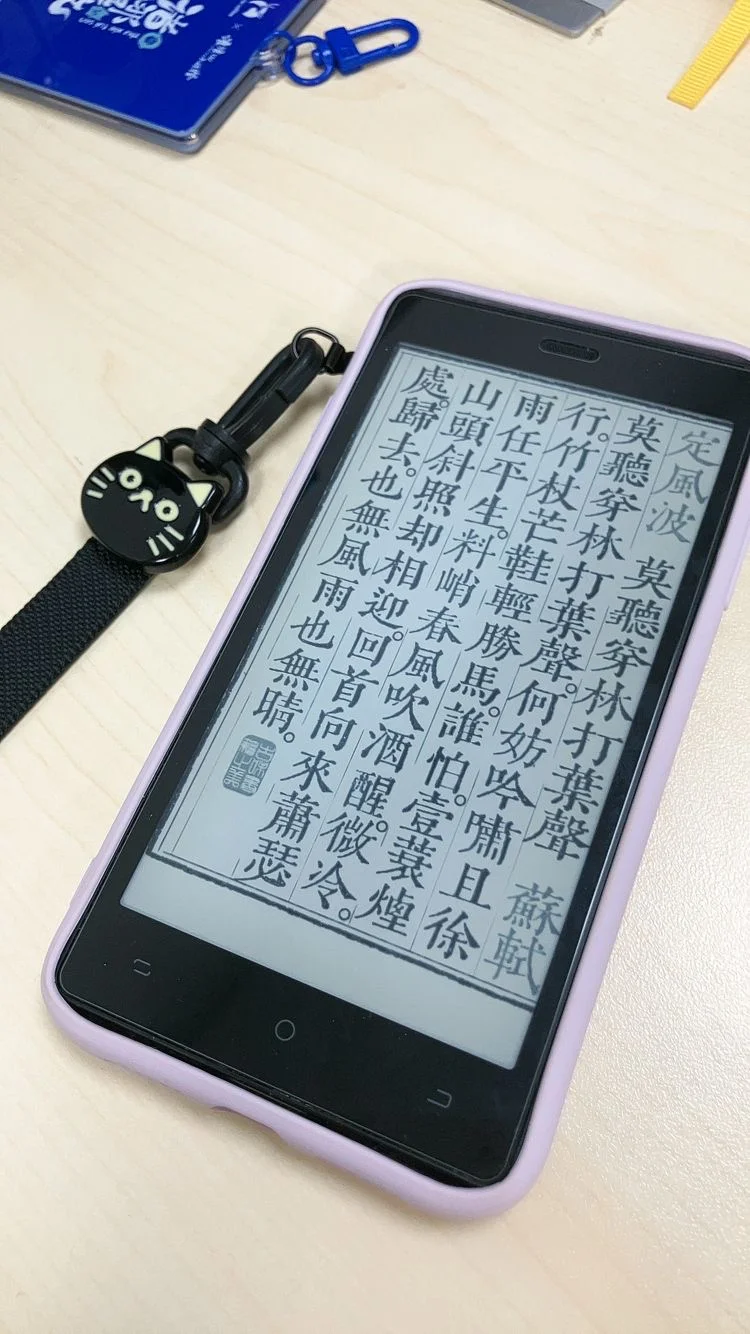 定風波 莫聽穿林打葉聲 蘇軾
莫聽穿林打葉聲。何妨吟嘯且徐
行。竹杖芒鞋輕勝馬。誰怕。壹蓑煙
雨任平生。料峭春風吹酒醒。微冷。
山頭斜照却相迎。回首向來蕭瑟
處。歸去。也無風雨也無晴。